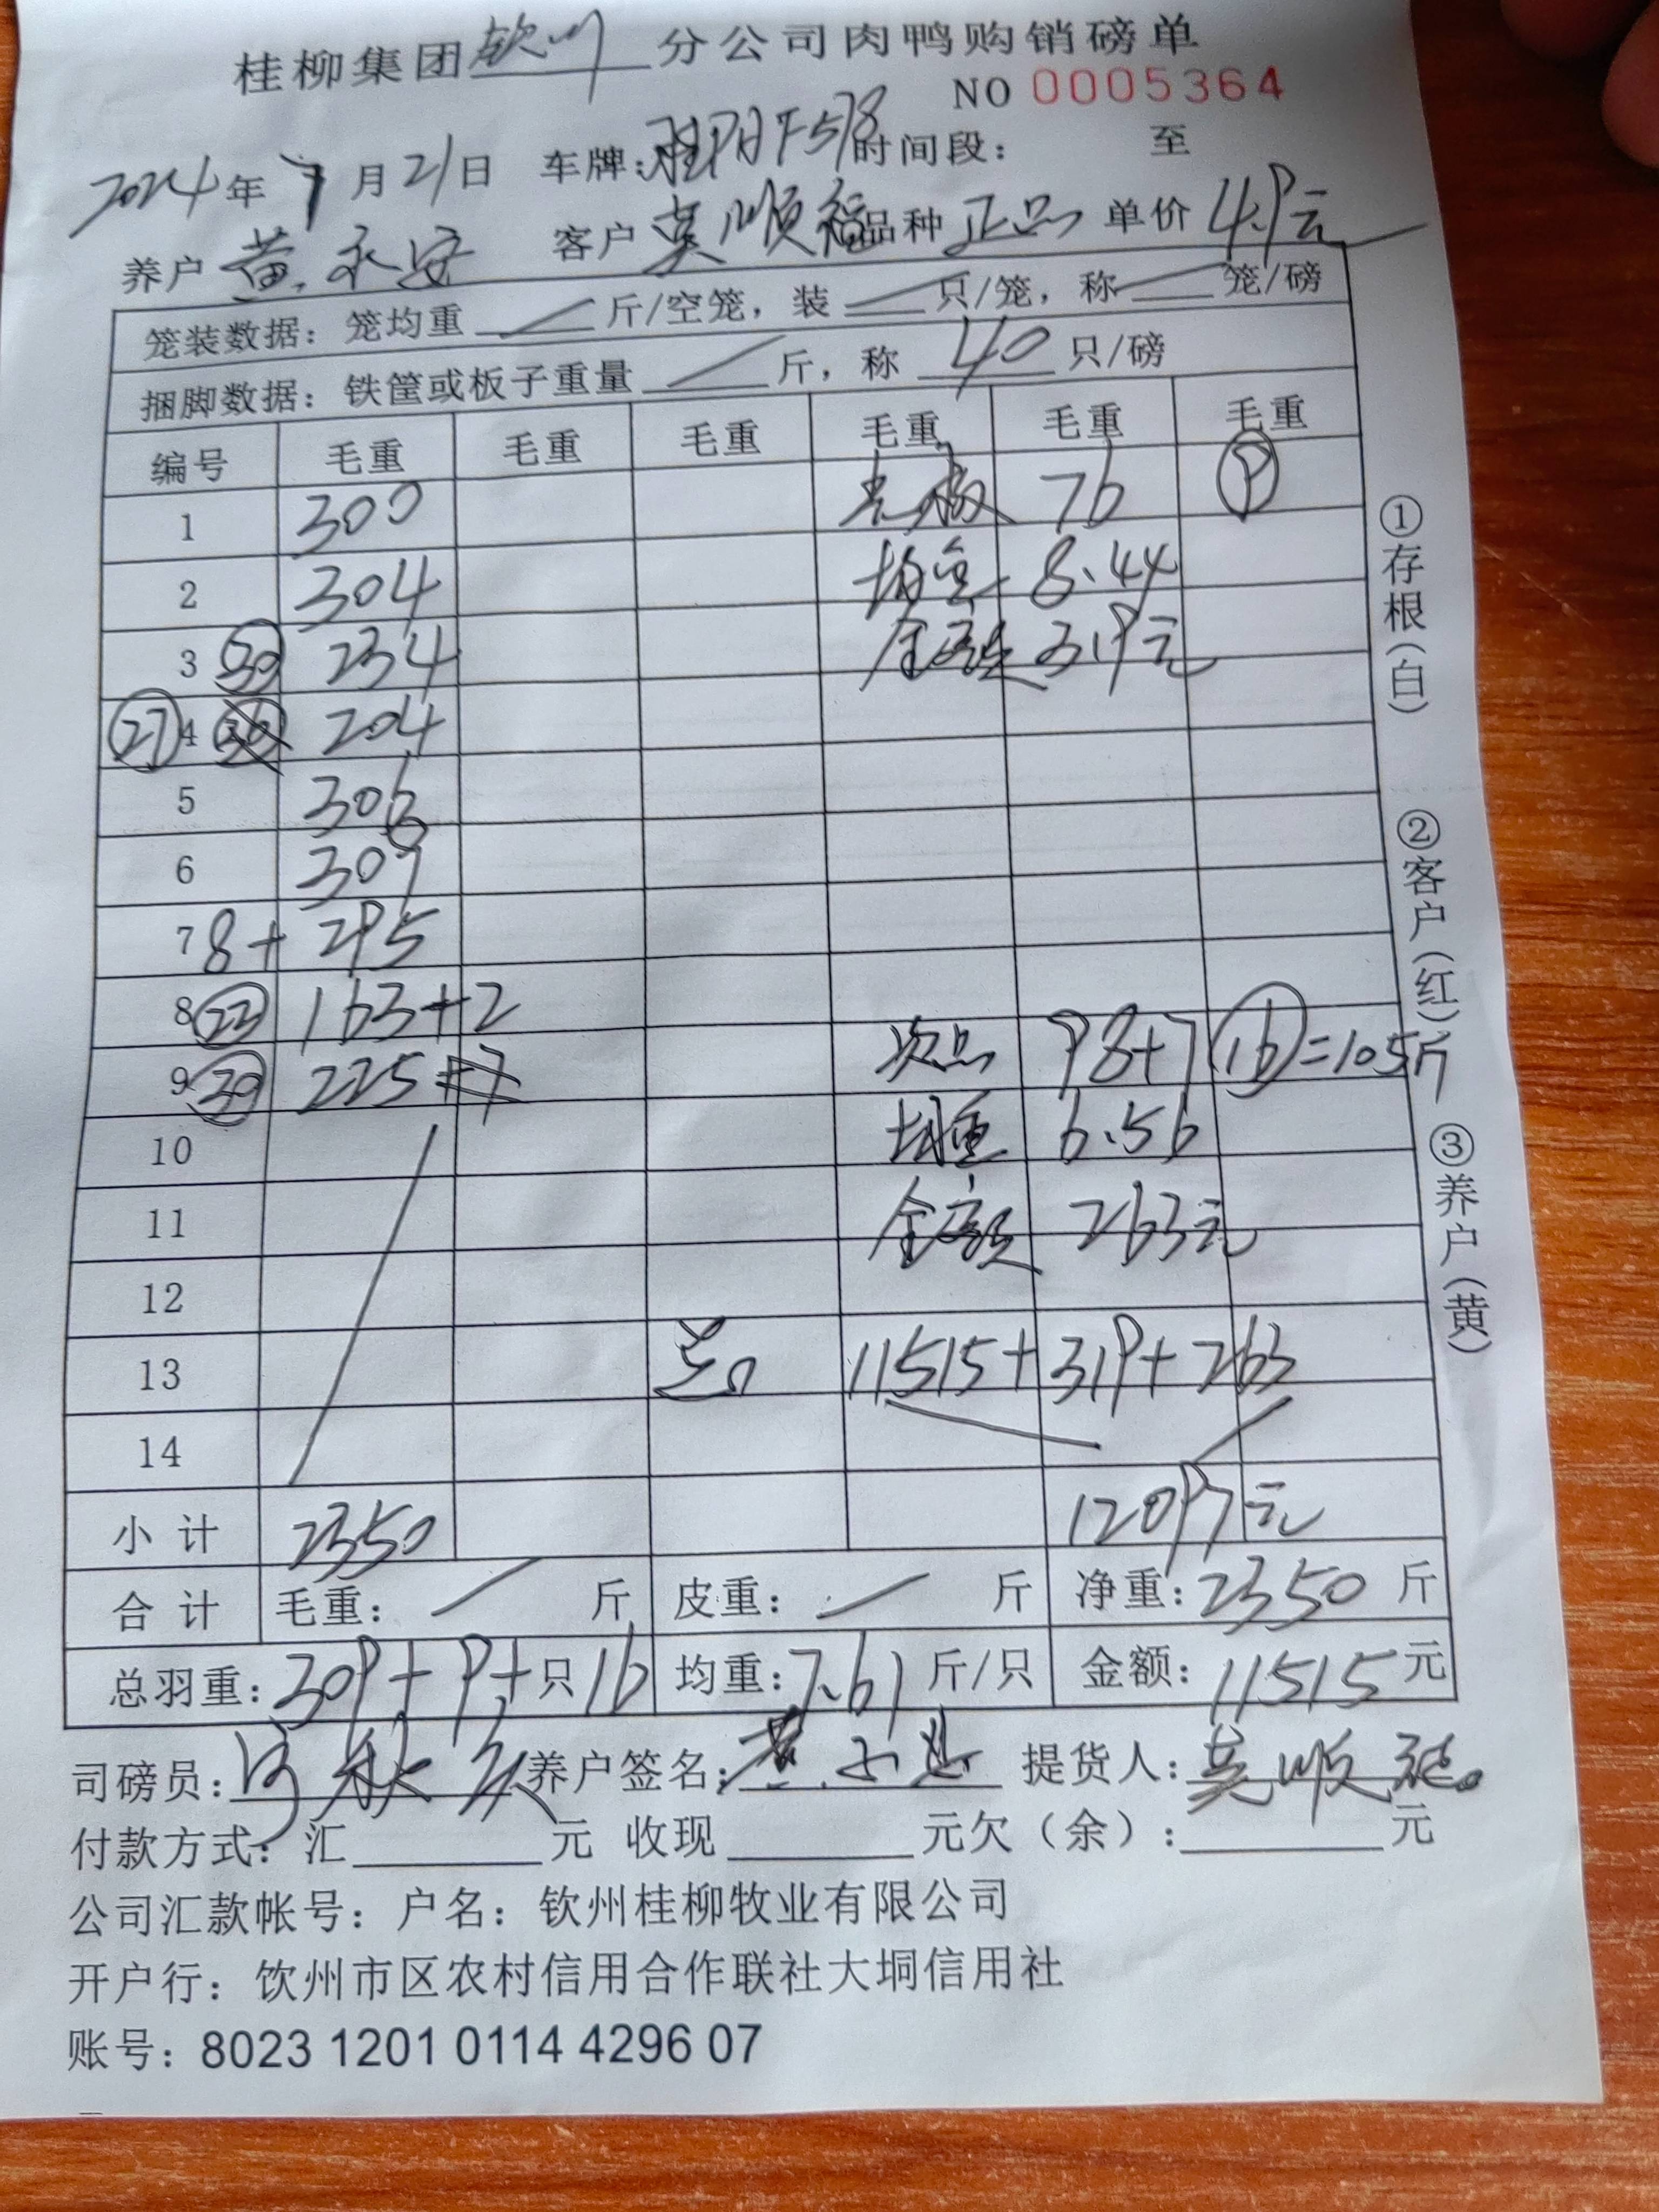 桂柳集团钦州分公司肉鸭购销磅单
NO 0005364
2024年7月21日 车牌: 时间段: 至
养户 黄永安 客户 莫顺福 品种 正品 单价 4.9元
笼装数据: 笼均重 / 斤/空笼, 装 / 只/笼, 称 / 笼/磅
捆脚数据: 铁筐或板子重量 / 斤, 称 40 只/磅
编号 毛重 毛重 毛重 毛重 毛重 毛重
1 300 76 9
2 304 均重 8.44
3 30 234 金额 319元
27 4 204
5 306
6 309
7 8+ 295
8 22 163+2 
9 30 225 次品 98+7 16 =105斤
10 均重 6.56
11 金额 263元
12
13 总 11515+319+263
14
小计 2350 12097元
合计 毛重: / 斤 皮重: / 斤 净重: 2350 斤
总羽重: 309+9+只16 均重: 7.61 斤/只 金额: 11515元
司磅员: 养户签名: 黄 提货人: 莫顺福
付款方式: 汇 元 收现 元欠(余): 元
公司汇款帐号: 户名: 钦州桂柳牧业有限公司
开户行: 饮州市区农村信用合作联社大垌信用社
账号: 8023 1201 0114 4296 07
①存根(白)
②客户(红)
③养户(黄)